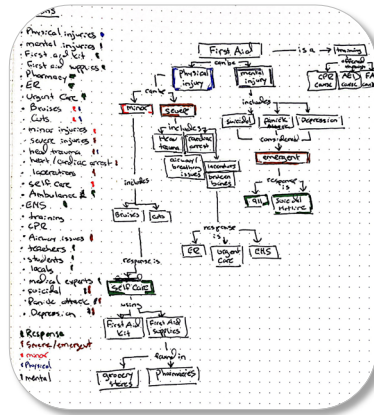 • Physical injuries
• mental injuries
• First aid kit
• First aid supplies
• Pharmacy
• ER
• Urgent Care
• Bruises
• Cuts
• minor injuries
• severe injuries
• head trauma
• heart/cardiac arrest
• lacerations
• self care
• Ambulance
• EMS
• training
• CPR
• Airway issues
• teachers
• students
• locals
• medical experts
• suicidal
• Panic attack
• Depression
Response
Severe/emergent
minor
Physical
mental
First Aid
is a
training
can be
offered
Physical injury
mental injury
CPR
can be
includes
minor
severe
suicidal
Depression
includes
considered
Head trauma
cardiac arrest
emergent
airway/breathing issues
lacerations
broken bones
response is
911
suicidal Hotline
includes
Bruises
cuts
response is
ER
urgent care
EMS
response is
self care
using
First Aid Kit
First Aid Supplies
found in
grocery stores
pharmacies